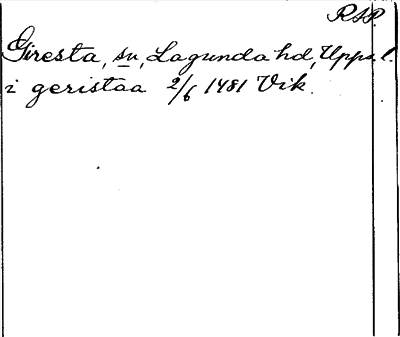 RSP.
Giresta, sn, Lagunda hd, Upps. l.
i geristaa 2/6 1481 Vik.